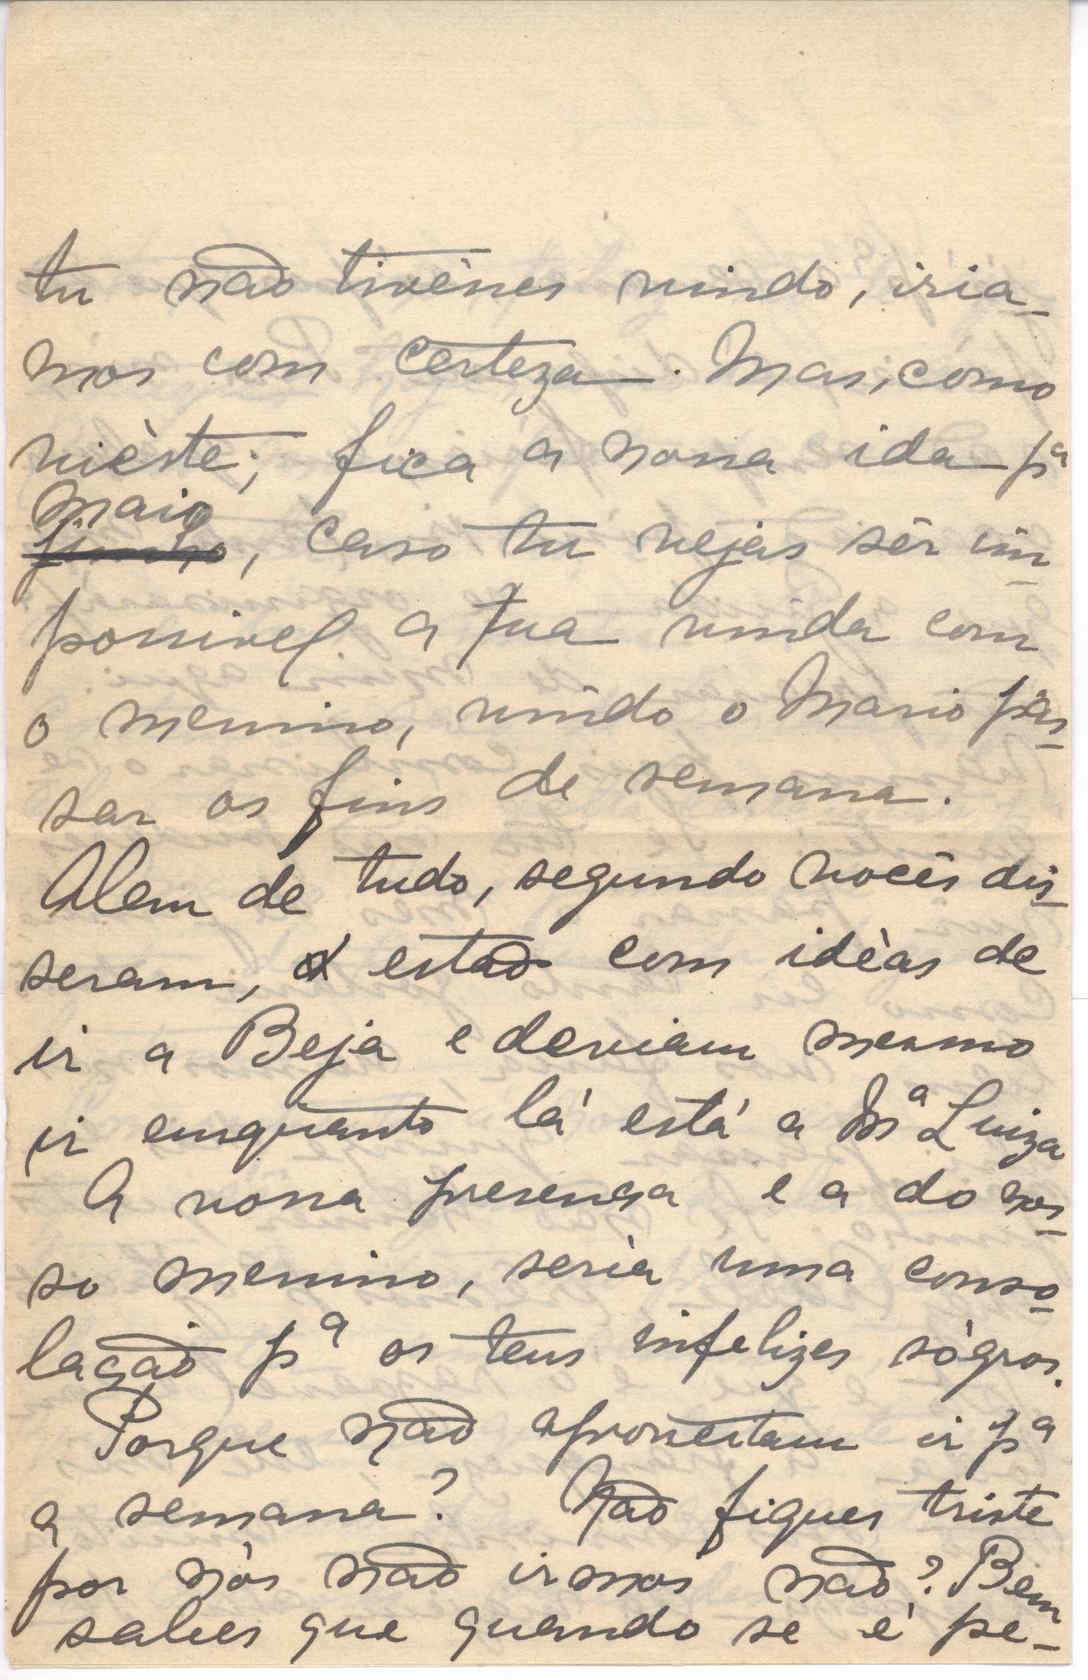 tu não tivèsses vindo, iria-
mos com certeza. Mas, cómo
vièste, fica a nossa ida pª
maio
junho, caso tu vejas sêr im-
possivel a tua vinda com
o menino, vindo o Mario pas-
sar os fins de semana.
Alem de tudo, segundo vocês dis-
seram, estão com idèas de
ir a Beja e deviam mesmo
ir emquanto lá está a Mª Luiza
A vossa presença e a do nos-
so menino, seria uma conso-
lação pª os teus infelizes sógros.
Porque não aproveitam ir pª
a semana? Não fiques triste
por nòs não irmos não? Bem
sabes que quando se é pe-